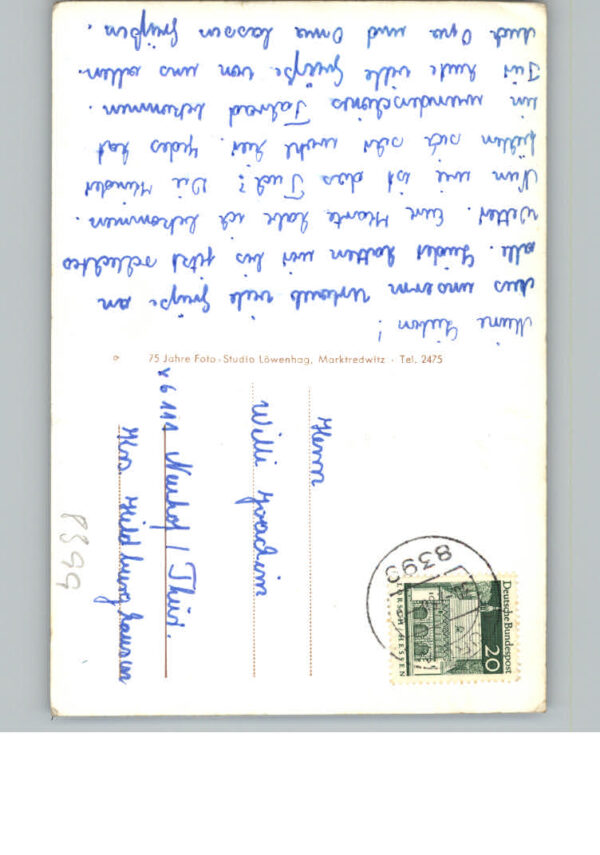 Meine Lieben!
Aus unserm Urlaub viele Grüße an
alle. Leider hatten wir bis jetzt schlechtes
Wetter. Eure Karte habe ich bekommen.
Nun wie ist das Tuch? Die Kinder
fühlen sich sehr wohl hier. Jedes hat
ein wunderschönes Fahrad bekommen.
Für heute viele Grüße von uns allen.
Auch Opa und Oma lassen Grüßen.
75 Jahre Foto-Studio Löwenhag, Marktredwitz · Tel. 2475
Herrn
Willi Joachim
x 6111 Neuhof / Thür.
Krs. Hildburghausen
8399
Deutsche Bundespost
20
LORSCH/HESSEN
8399